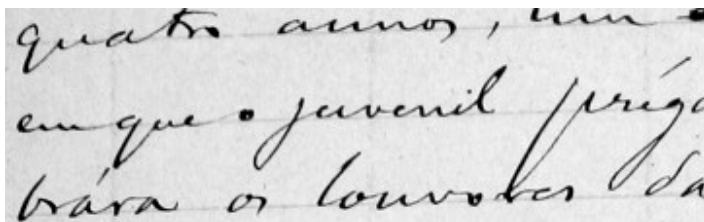 quatro annos, um
em que o juvenil préga
brára os louvores da